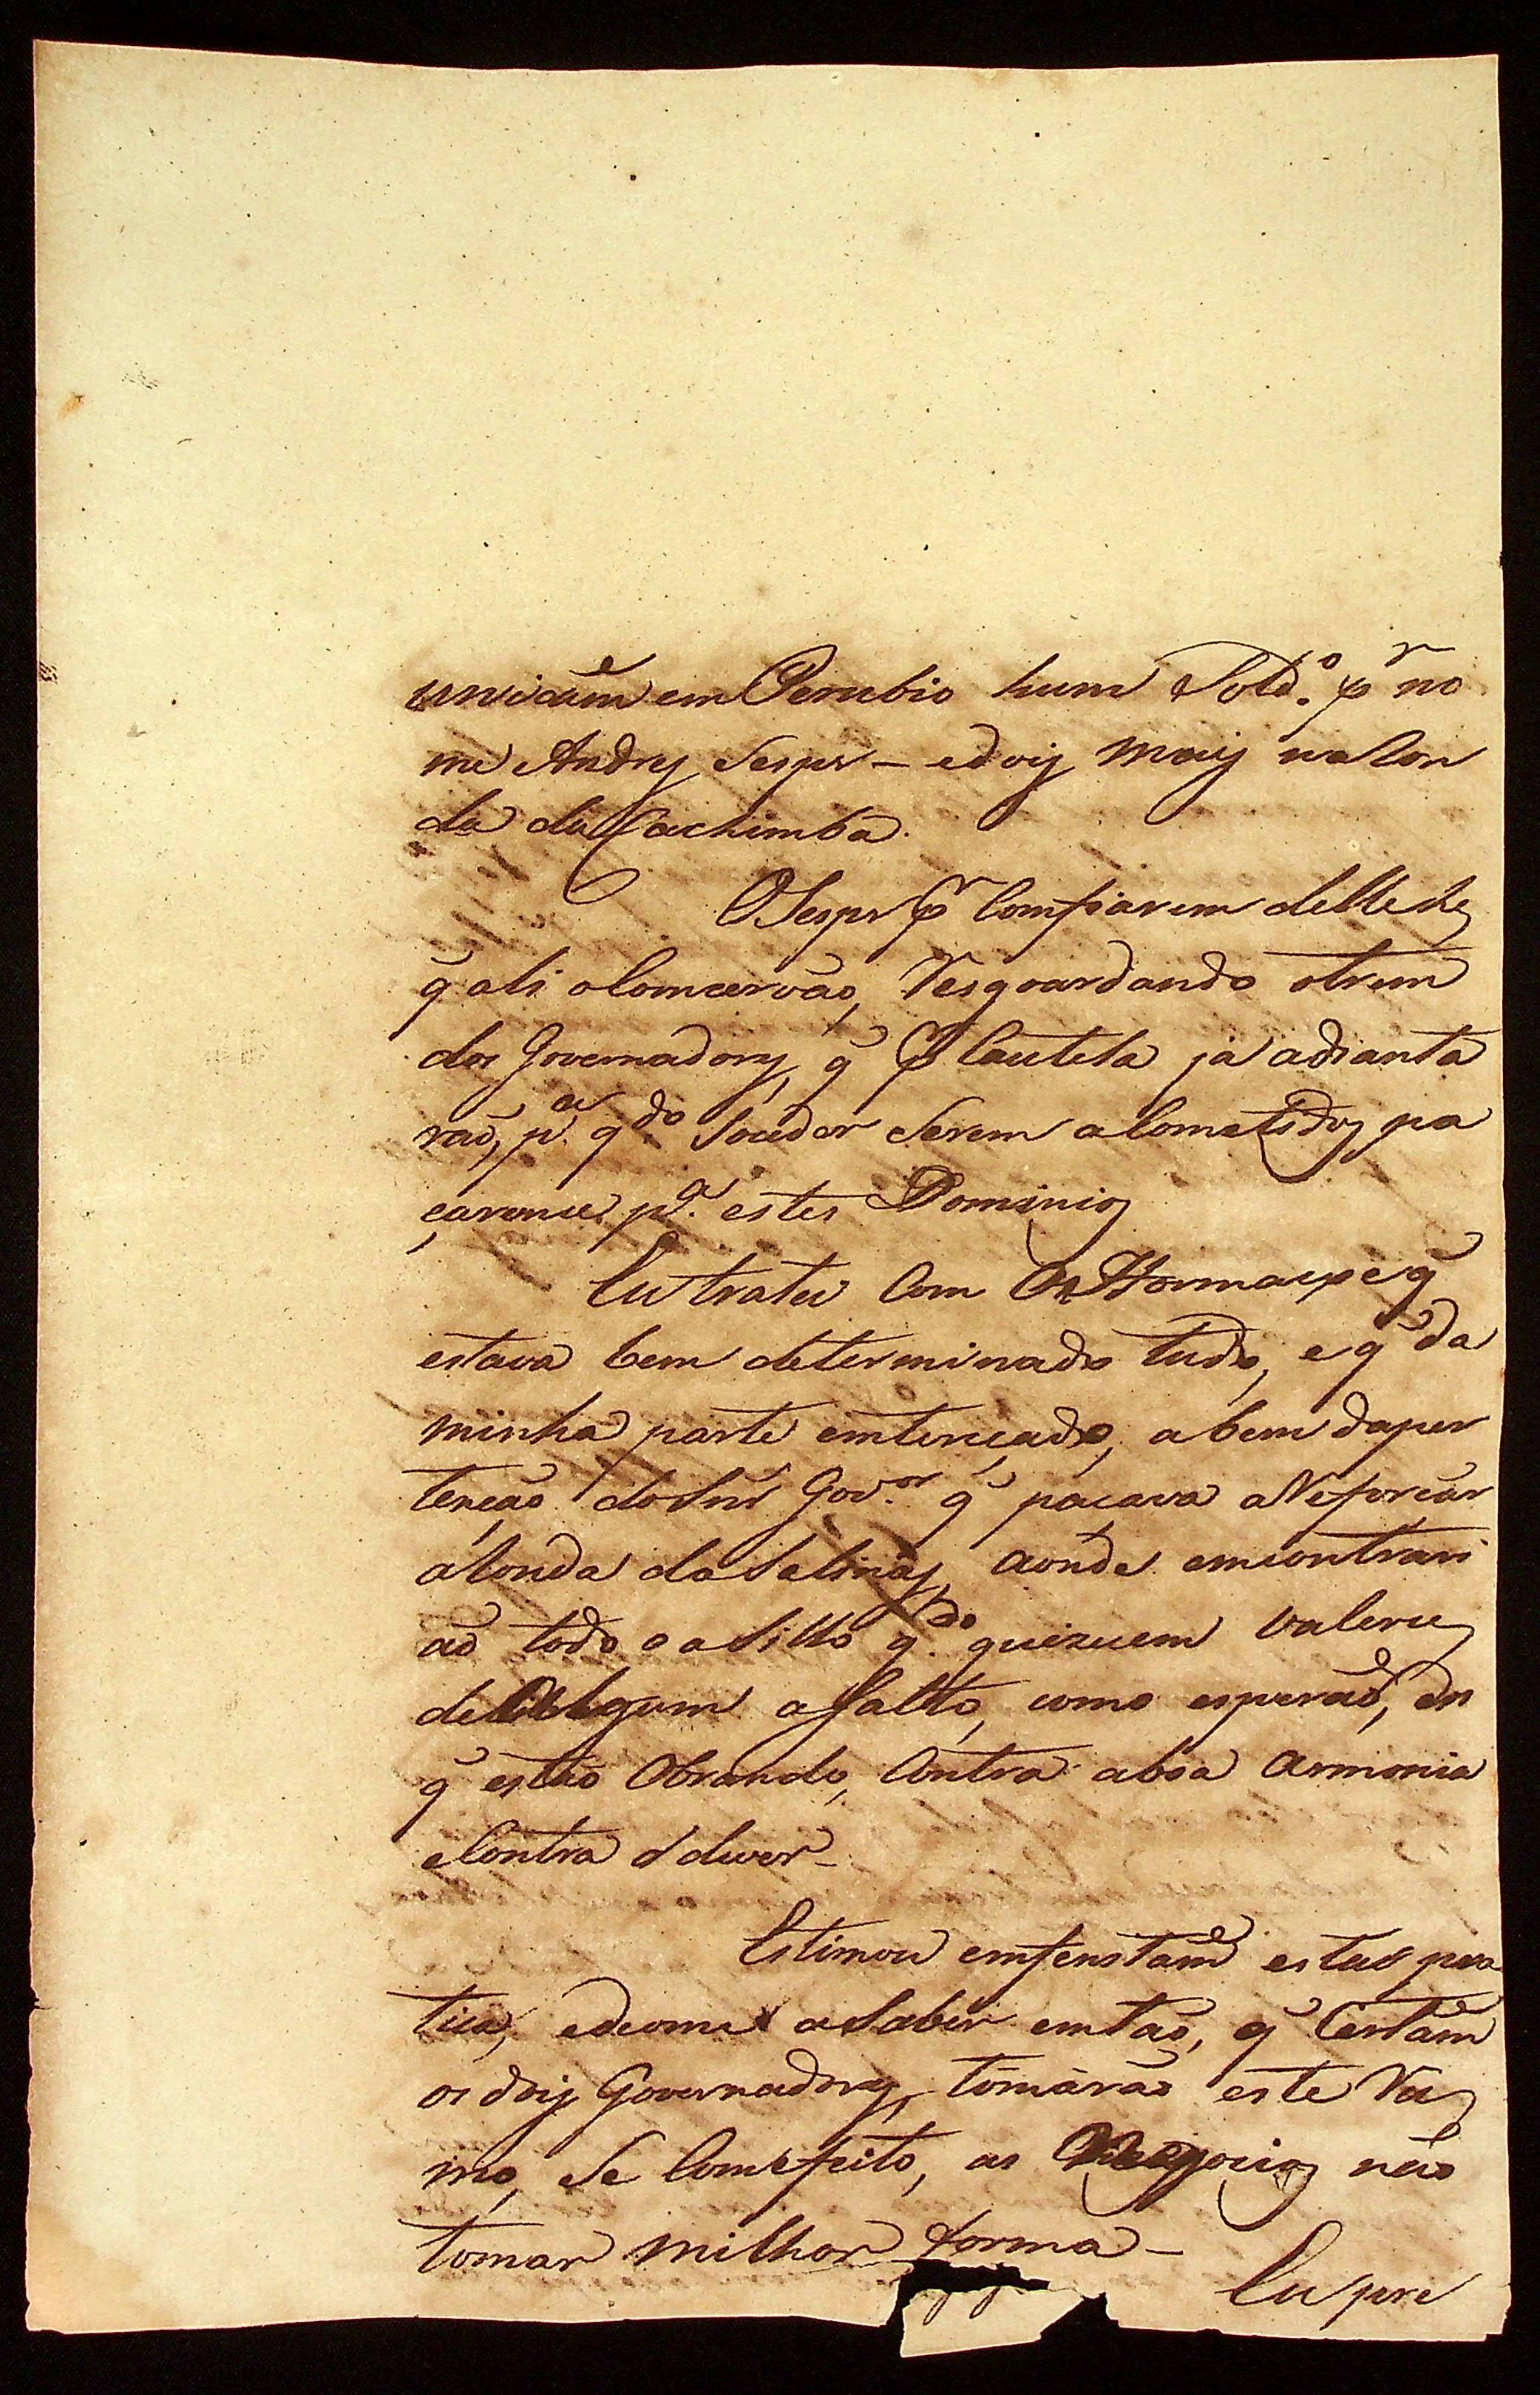 unicam̃ em Perubio hum Sold.º p̃r no
me Andrej Sespr – e doiz maiz na Ron
da da Cachimba.
O Sespr p̃r Comfiarem delle he,
q̃ ali o Comcervão, Resgoardando o trem
dos Governadorez, q̃ p̃r Cautela já adianta
raõ, p.ª q.do Soceder Serem acometidoz pa
çarence p.ª estes Dominioz
Eu tratei Com o Hormaexe q̃
estava bem determinado tudo, e q̃ da
minha parte emtereçado, a bem da per
tenção do Sñr Gov.or q̃ paçava a Reforçar
a Ronda da Salinaz, aonde emcontrari
aõ todo o aSillo q.do quizecem valerce
de Algum aSalto, como esperaõ, dos
q̃ estão Obrando, Contra a boa armonia
e Contra o dever –
Estimou emfenitam.e esta pra
tica, e deome a Saber emtaõ, q̃ Certam̃
os doiz Governadorez, tomàràõ este Ra
mo, Se Com efeito, as Negocioz não
tomar milhor forma –
Eu pre